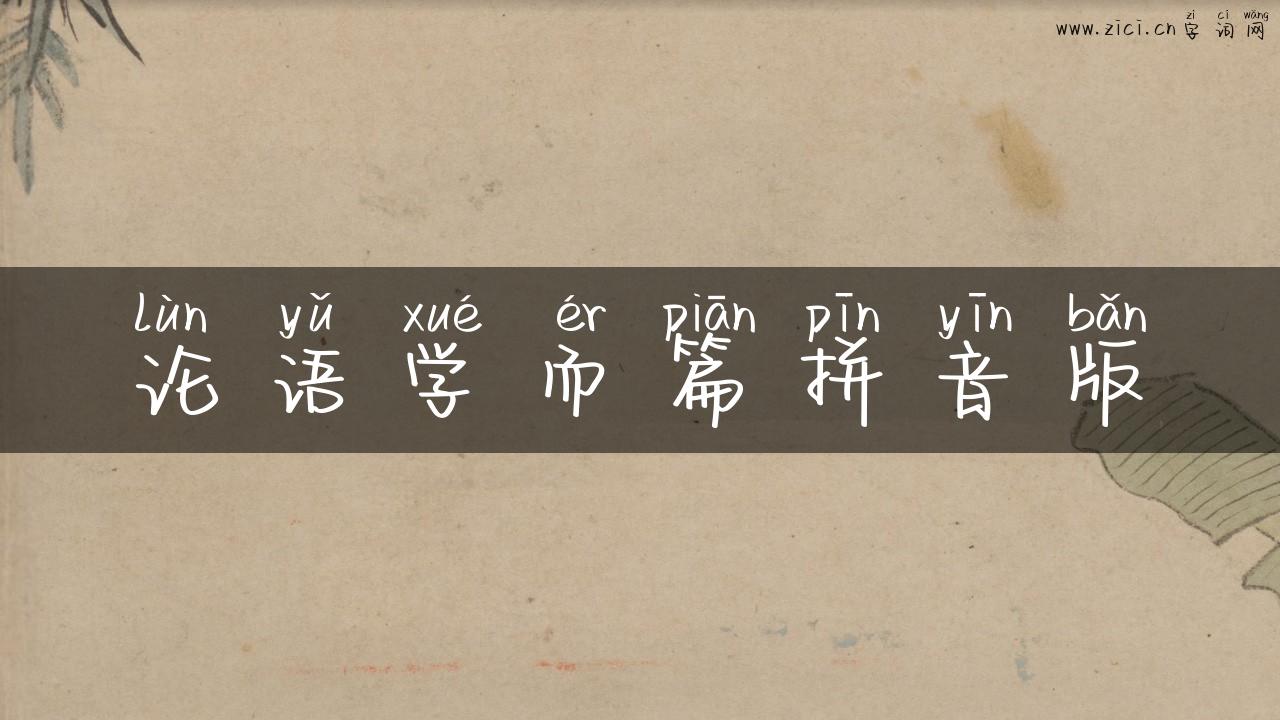 zì cí wǎng
www.zici.cn 字 词 网
lùn yǔ xué ér piān pīn yīn bǎn
论 语 学 而 篇 拼 音 版